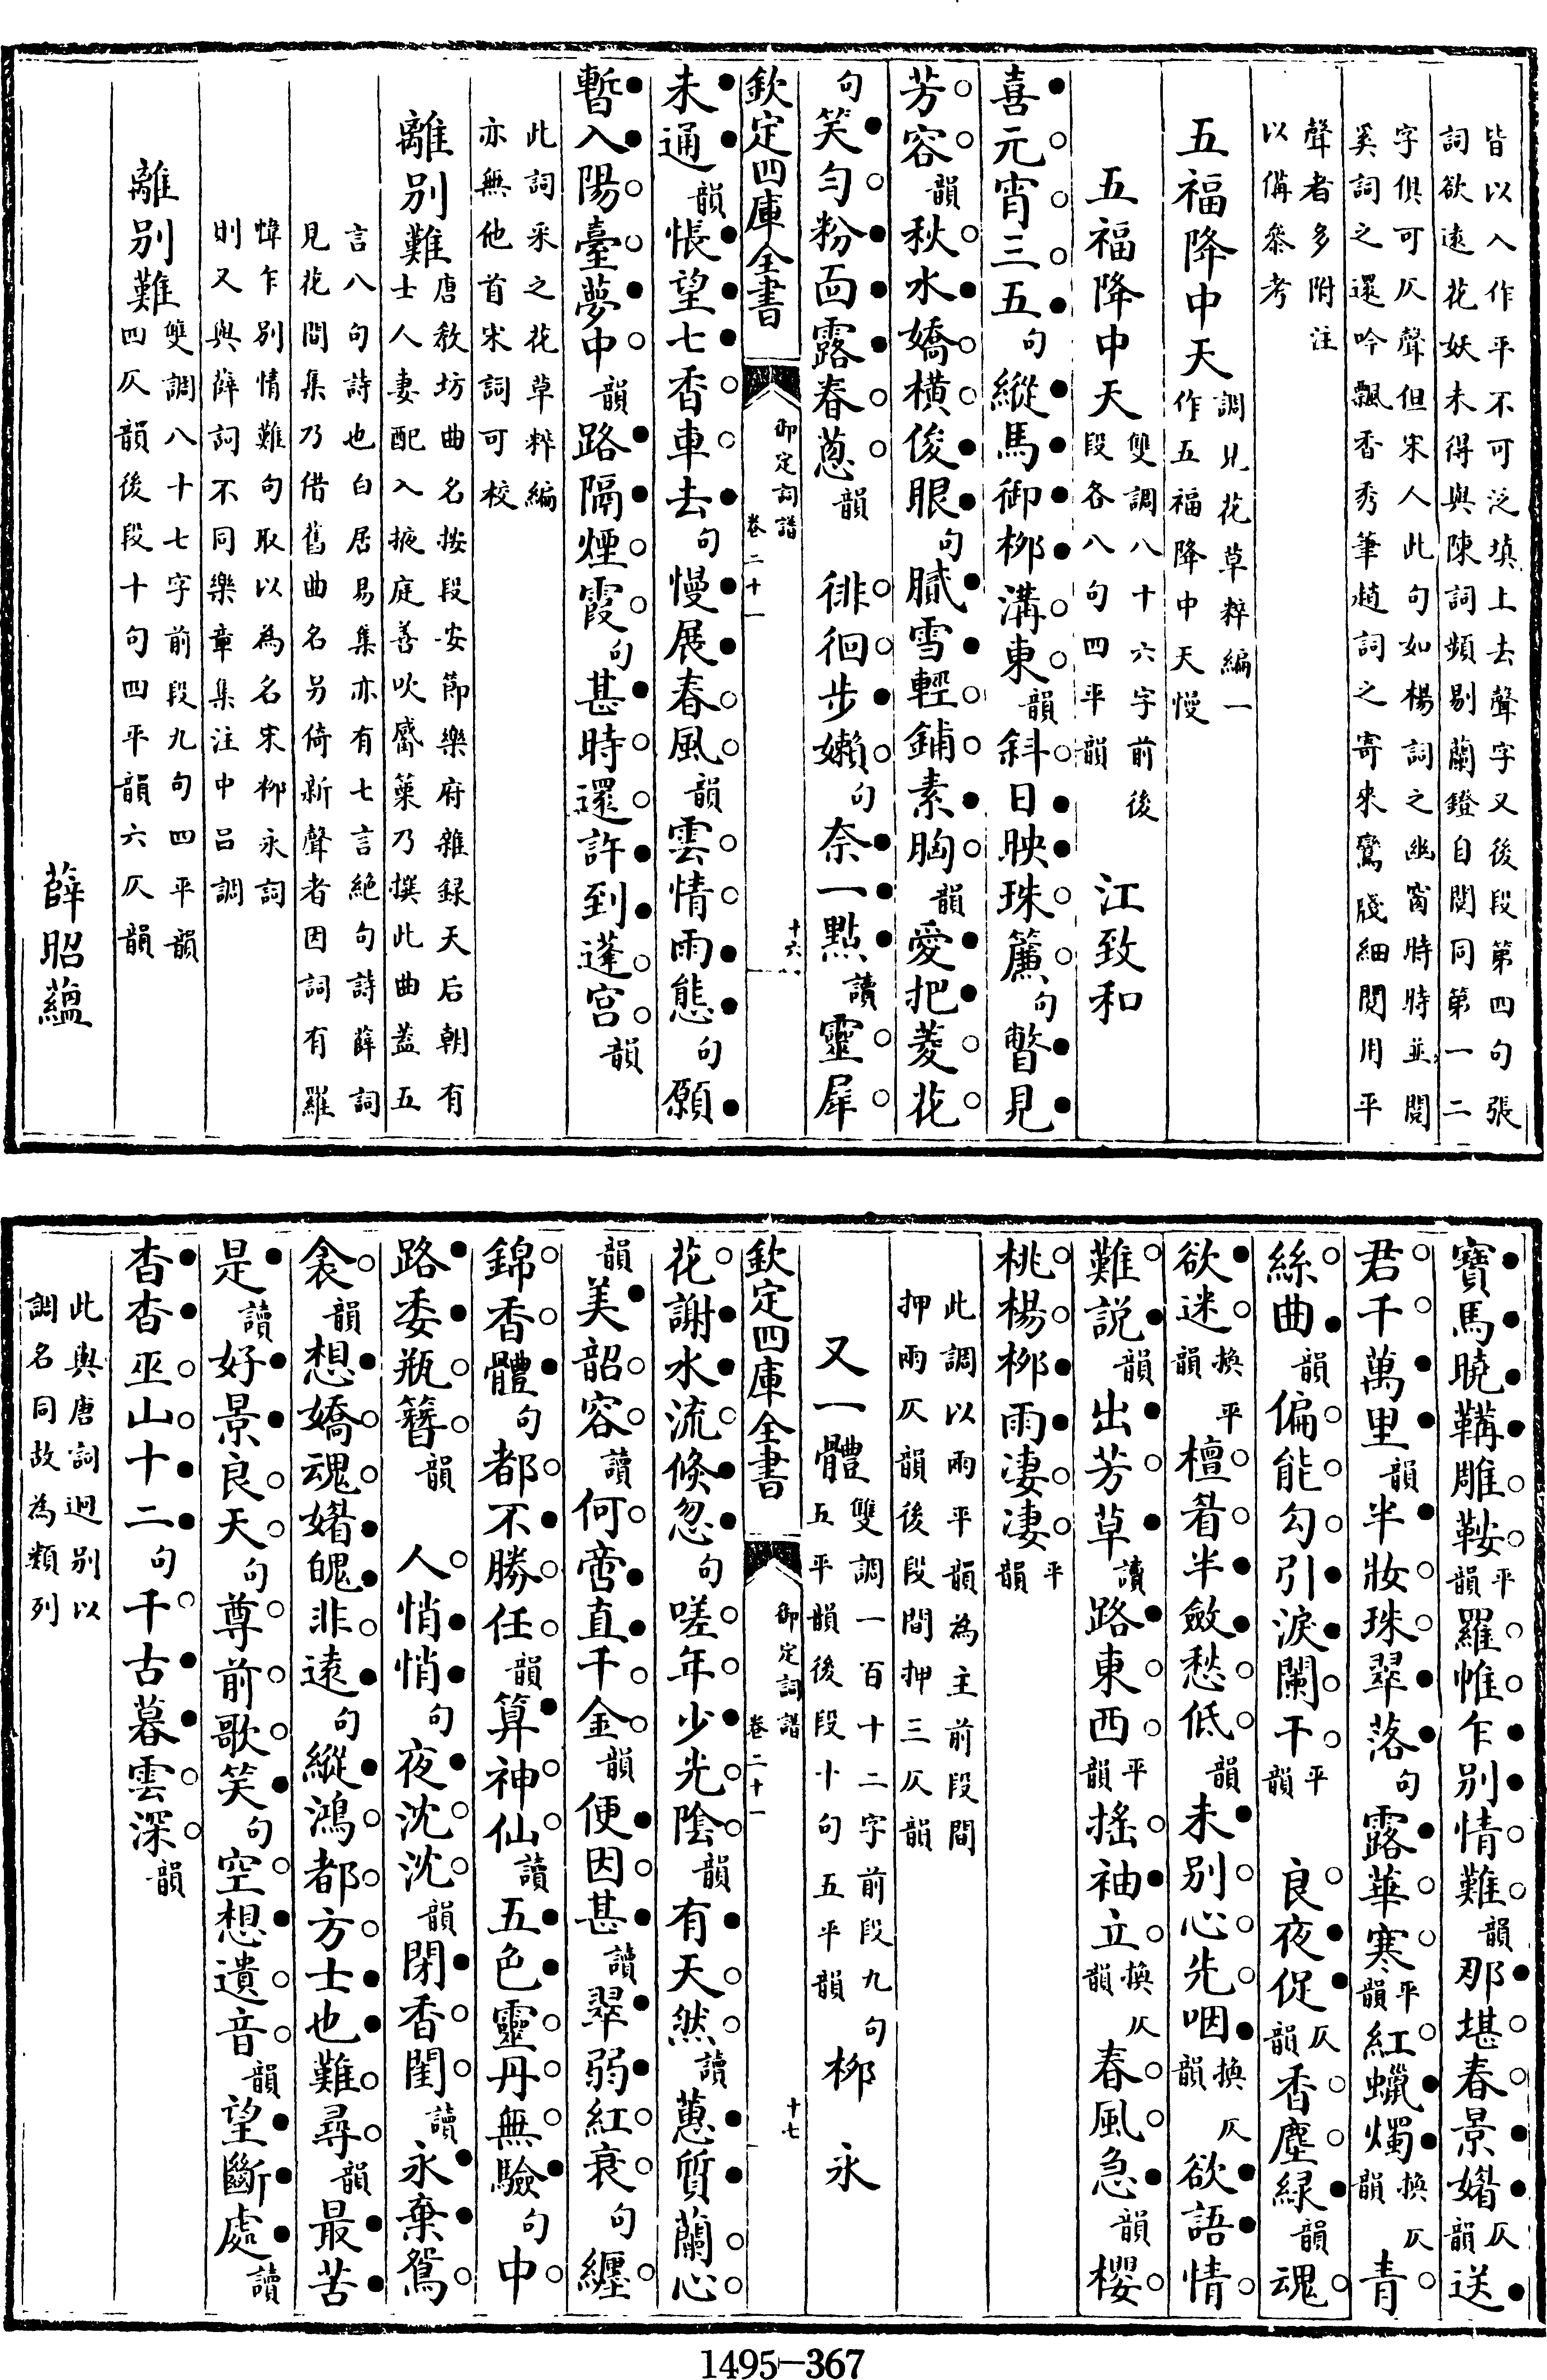 皆以入作平不可泛填上去聲字又後段第四句張
詞欲遠花妖未得與陳詞頻剔蘭鐙自閱同第一二
字俱可仄聲但宋人此句如楊詞之幽窗時時並閱
奚詞之還吟飄香秀筆趙詞之寄來鸞牋細閱用平
聲者多附注
以備參考
五福降中天調見花草粹編一
作五福降中天慢
五福降中天雙調八十六字前後
段各八句四平韻
江致和
喜元宵三五句縱馬御柳溝東韻斜日映珠簾句瞥見
芳容韻秋水嬌橫俊眼句膩雪輕鋪素胸韻愛把菱花
句笑勻粉面露春蔥韻 徘徊步嬾句奈一點讀靈犀
欽定四庫全書
御定詞譜
卷二十一
十六
未通韻悵望七香車去句慢展春風韻雲情雨態句願
暫入陽臺夢中韻路隔煙霞句甚時還許到蓬宮韻
此詞采之花草粹編
亦無他首宋詞可校
離別難唐教坊曲名按段安節樂府雜録天后朝有
士人妻配入掖庭善吹觱篥乃撰此曲蓋五
言八句詩也白居易集亦有七言絶句詩薛詞
見花間集乃借舊曲名另倚新聲者因詞有羅
幃乍別情難句取以為名宋柳永詞
則又與薛詞不同樂章集注中呂調
離別難雙調八十七字前段九句四平韻
四仄韻後段十句四平韻六仄韻
薛昭藴
寶馬曉鞲雕鞍平韻羅帷乍別情難韻那堪春景媚仄韻送
君千萬里韻半妝珠翠落句露華寒平韻紅蠟燭換仄韻青
絲曲韻偏能勾引淚闌干平韻 良夜促仄韻香塵綠韻魂
欲迷換平韻檀眉半斂愁低韻未別心先咽換仄韻欲語情
難說韻出芳草讀路東西平韻搖袖立換仄韻春風急韻櫻
桃楊柳雨凄凄平韻
此調以兩平韻為主前段間
押兩仄韻後段間押三仄韻
又一體雙調一百十二字前段九句
五平韻後段十句五平韻
柳永
欽定四庫全書
御定詞譜
卷二十一
十七
花謝水流倐忽句嗟年少光陰韻有天然讀蕙質蘭心
韻美韶容讀何啻直千金韻便因甚讀翠弱紅衰句纏
錦香體句都不勝任韻算神仙讀五色靈丹無驗句中
路委瓶簪韻 人悄悄句夜沈沈韻閉香閨讀永棄鴛
衾韻想嬌魂媚魄非遠句縱鴻都方士也難尋韻最苦
是讀好景良天句尊前歌笑句空想遺音韻望斷處讀
杳杳巫山十二句千古暮雲深韻
此與唐詞迥別以
調名同故為類列
1495—367